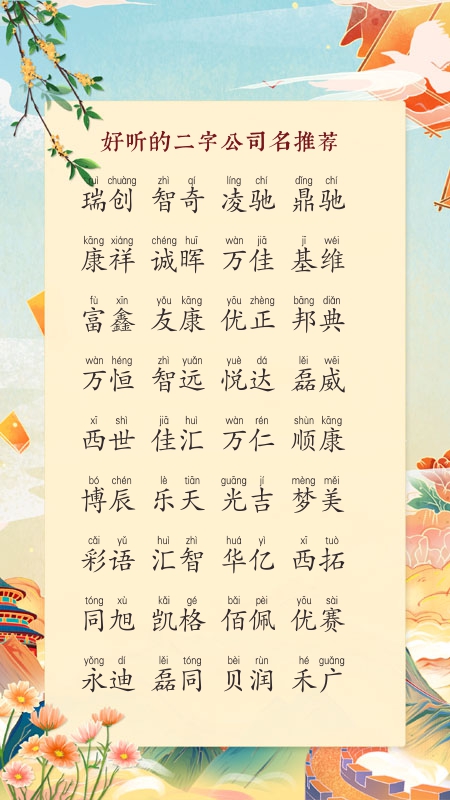 好听的二字公司名推荐
ruì chuàng zhì qí líng chí dǐng chí
瑞创 智奇 凌驰 鼎驰
kāng xiáng chéng huī wàn jiā jī wéi
康祥 诚晖 万佳 基维
fù xīn yǒu kāng yōu zhèng bāng diǎn
富鑫 友康 优正 邦典
wàn héng zhì yuǎn yuè dá lěi wēi
万恒 智远 悦达 磊威
xī shì jiā huì wàn rén shùn kāng
西世 佳汇 万仁 顺康
bó chén lè tiān guāng jí mèng měi
博辰 乐天 光吉 梦美
cǎi yǔ huì zhì huá yì xī tuò
彩语 汇智 华亿 西拓
tóng xù kǎi gé bǎi pèi yōu sài
同旭 凯格 佰佩 优赛
yǒng dí lěi tóng bèi rùn hé guǎng
永迪 磊同 贝润 禾广